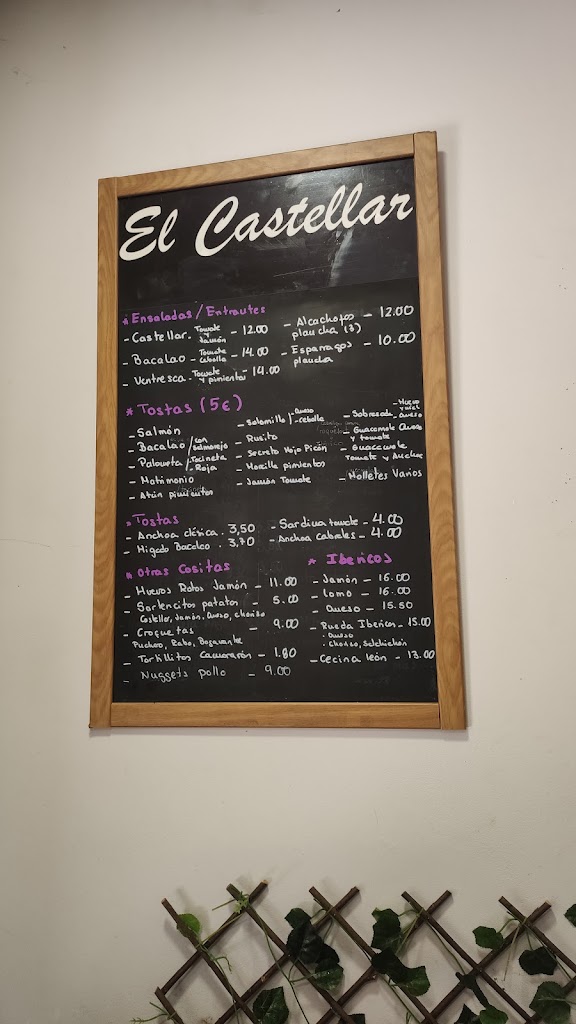 El Castellar
* Ensaladas/Entrantes
- Castellar. Tomate y Jamón - 12.00
- Bacalao - Tomate cebolla - 14.00
- Ventresca. Tomate y pimientos - 14.00
- Alcachofas plancha (3) - 12.00
- Esparragos plancha - 10.00
* Tostas (5€)
- Salmón
- Bacalao / con salmorejo
- Palometa / Sardineta Roja
- Matrimonio
- Atún pimientos
- Solomillo - Queso - cebolla
- Rusita
- Secreto Mojo Picón
- Morcilla pimientos
- Jamón Tomate
- Sobrasada - Huevo y miel - Queso
- Guacamole Queso y tomate
- Guacamole Tomate y Anchoa
- Molletes Varios
* Tostas
- Anchoa clásica . 3,50
- Higado Bacalao . 3,70
- Sardina tomate - 4.00
- Anchoa cabrales - 4.00
* Otras Cositas
- Huevos Rotos Jamón - 11.00
- Sartencitas patatas - 5.00
Castellar, Jamón, Queso, chorizo
- Croquetas - 9.00
Puchero, Rabo, Bogavante
- Tortillitas Camarón - 1.80
- Nuggets pollo - 9.00
* Ibericos
- Jamón - 16.00
- Lomo - 16.00
- Queso - 15.50
- Rueda Ibericos - 15.00
. Queso
. Chorizo, Salchichón
- Cecina león - 13.00